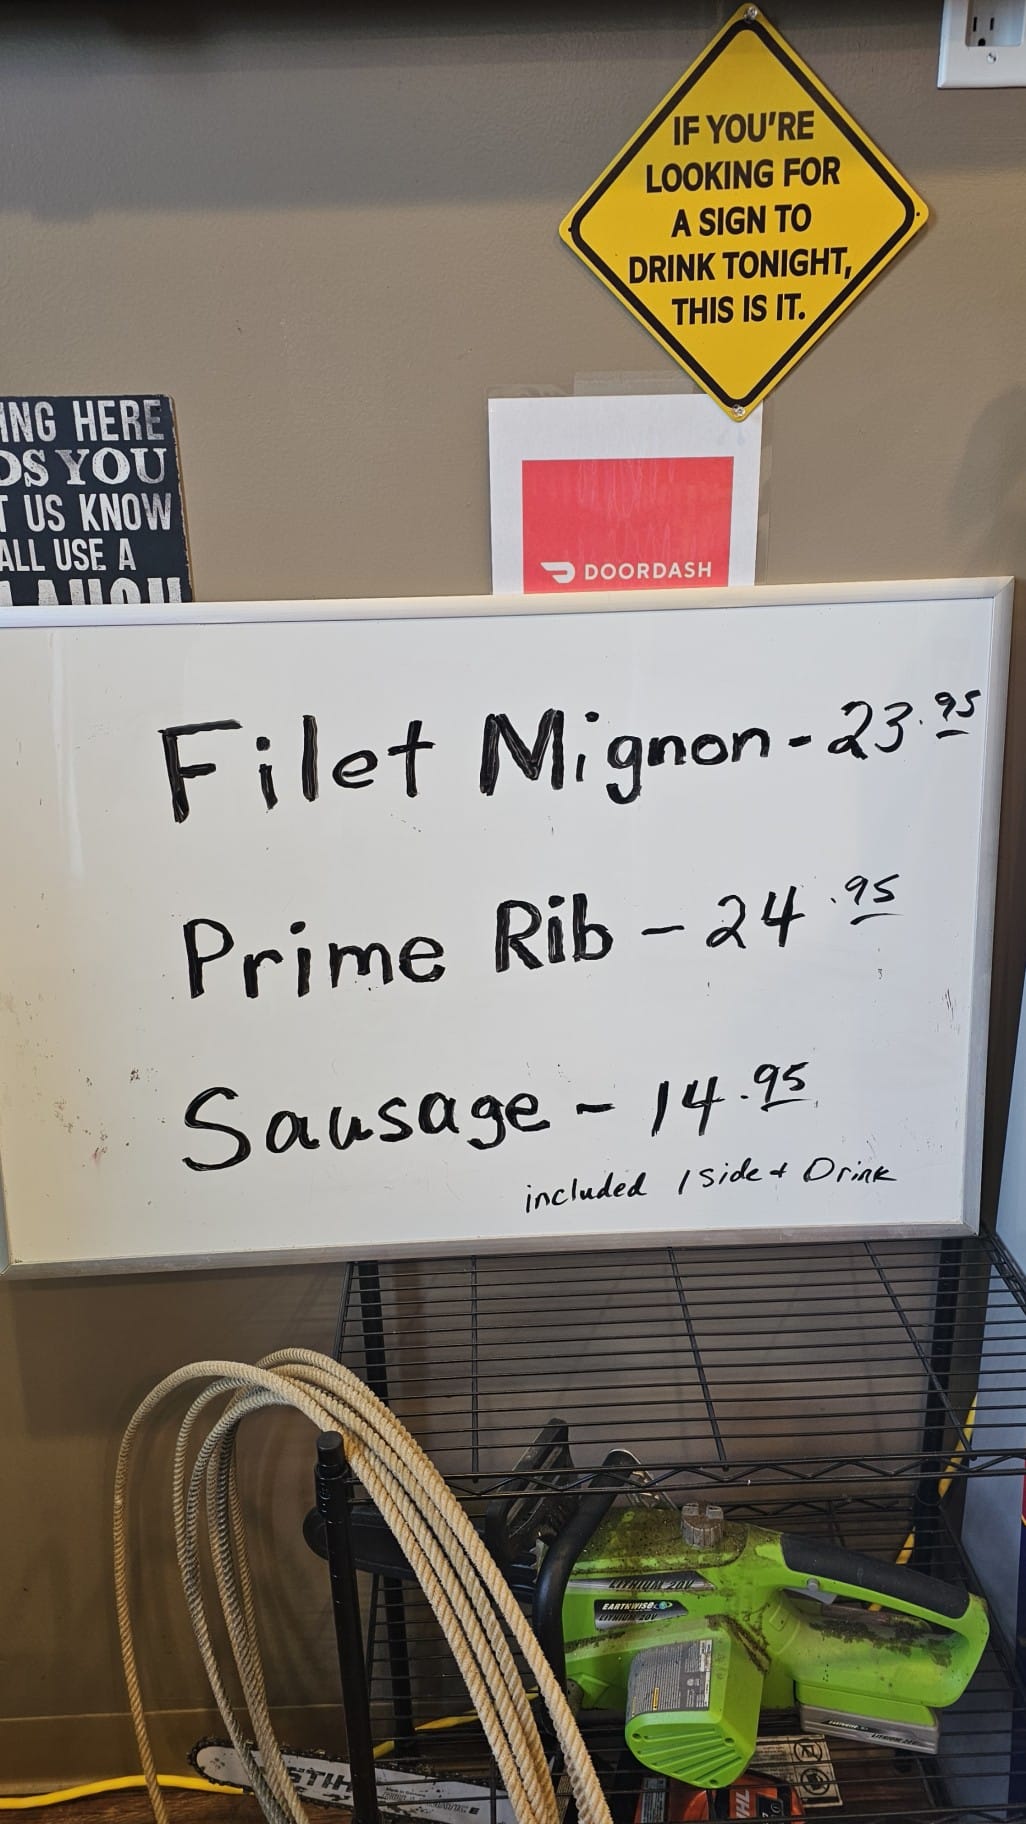 IF YOU'RE
LOOKING FOR
A SIGN TO
DRINK TONIGHT,
THIS IS IT.
HERE
YOU
US KNOW
ALL USE A
LAUGH
DOORDASH
Filet Mignon - 23.95
Prime Rib - 24.95
Sausage - 14.95
included 1 side + Drink
LITHIUM 20V
EARTHWISE
LITHIUM 20V
STIH